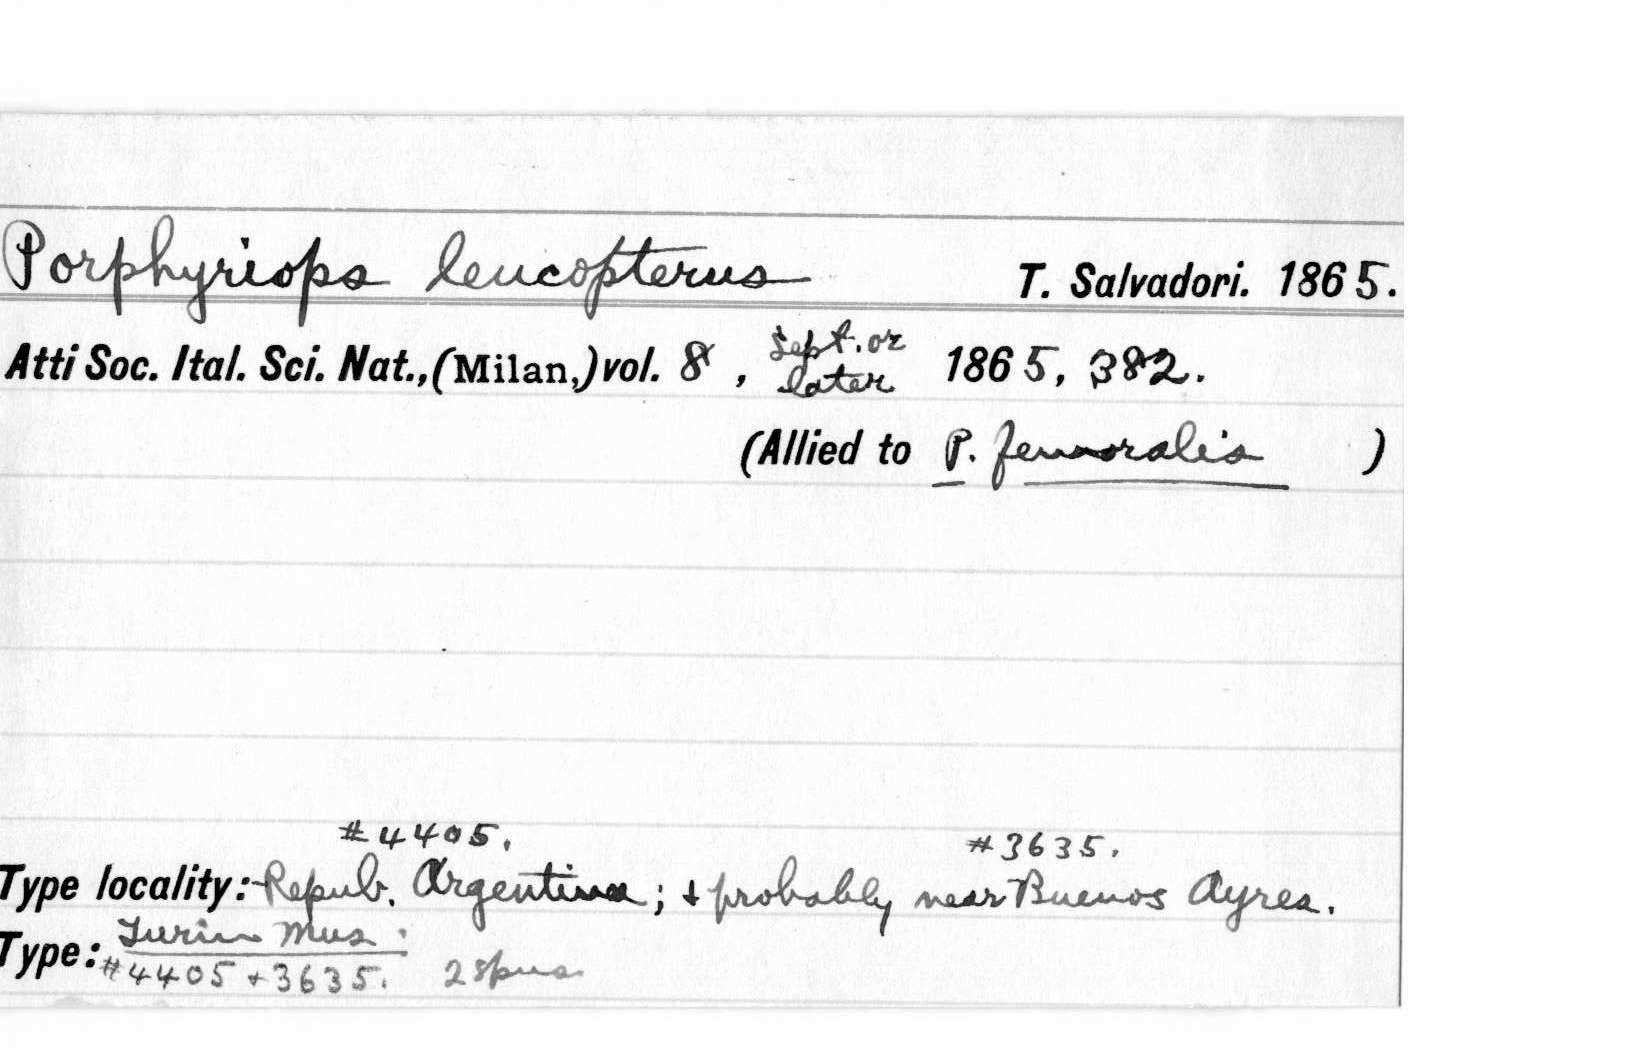 Porphyriops leucopterus T. Salvadori. 1865.
Atti Soc. Ital. Sci. Nat., (Milan,) vol. 8, Sept. or later 1865, 382.
(Allied to P. femoralis )
#4405. #3635.
Type locality:- Repub. Argentina; + probably near Buenos Ayres.
Turin Mus.
Type: #4405 + 3635. 2 spms